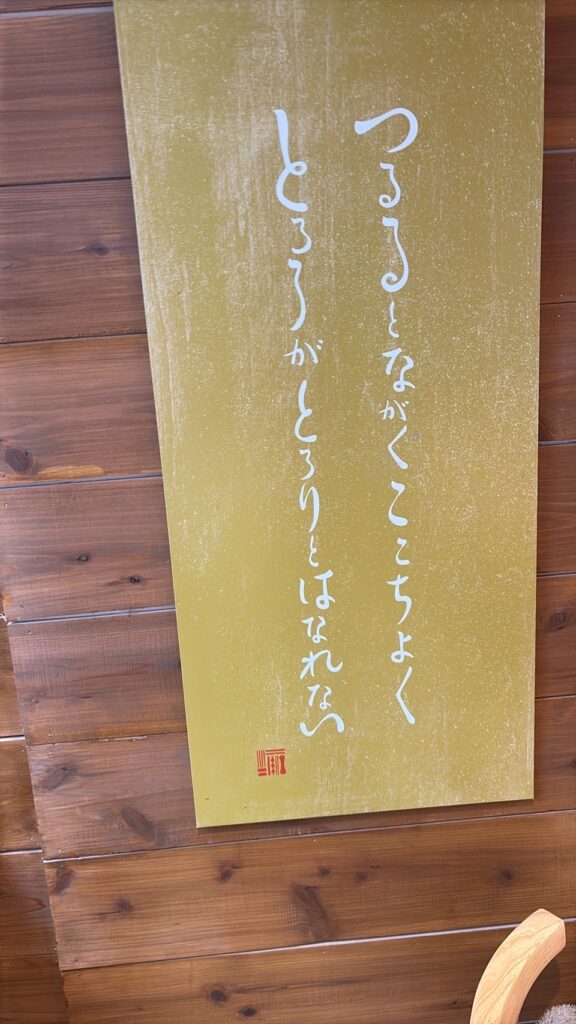 つるるとながくここちよく
とろろがとろりとはなれない